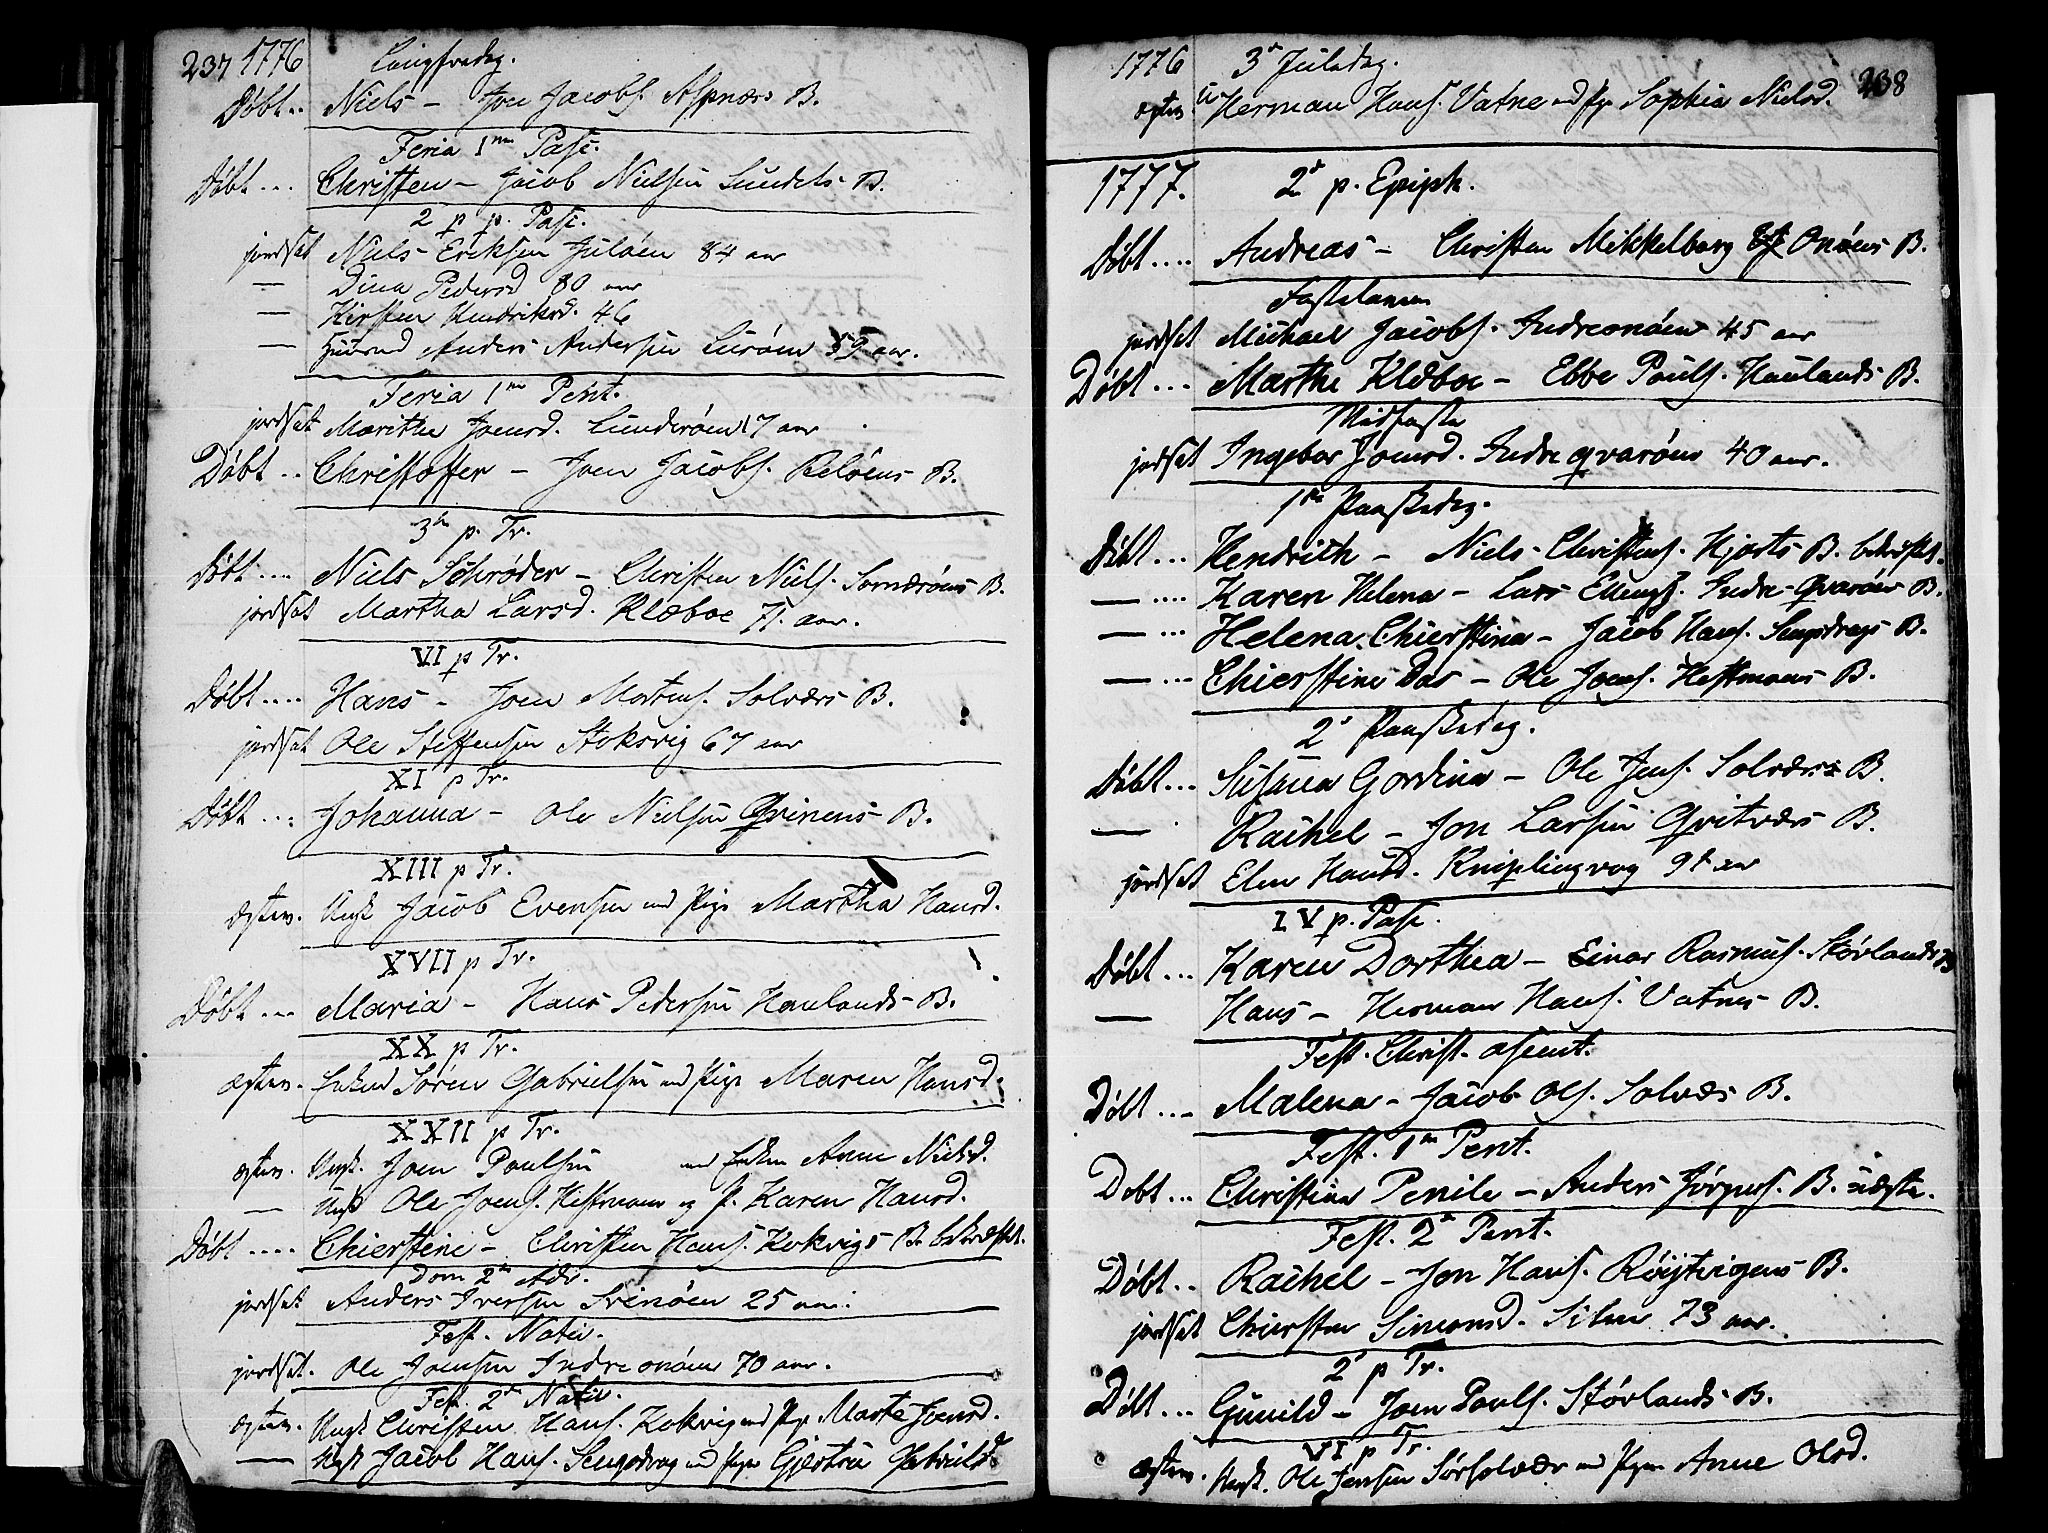 237 1776 Langfredag.
Døbt.. Niels – Joen Jacobs. Aspnæs B.
Feria 1ma Pasc.
Døbt... Christen – Jacob Nielsen Sundets B.
2 p p. Pasc.
jordsat Niels Eriksen Juløen 84 aar
— Dina Pedersd 80 aar
— Kirsten Hendriksd. 46
— Anders Andersen Lurøen aar.
Feria 1ma Pent.
jordsat Marithe Joensd. Sunderøen 17 aar
Døbt.. Christoffer – Joen Jacobs. Reløens B.
3tia p. Tr.
Døbt.... Niels Schrøder – Christen Niels. Sornærøens B.
jordsat Martha Larsd. Klæboe 71. aar.
VI p Tr.
Døbt.... Hans – Joen Mortens. Solværs B.
jordsat Ole Steffensen Stoksvig 67 aar
XI p Tr.
Døbt... Johanna – Ole Nielsen Qvinens B.
XIII p Tr.
ægtev. Ungk Jacob Evensen med Pige Martha Hansd.
XVII p Tr.
Døbt... Maria – Hans Pedersen Haulands B.
XX p Tr.
ægtev. Enkem Søren Gabrielsen med Pige Maren Hansd.
XXII p Tr.
ægtev. Ungk. Joen Poulsen med Enken Anne Nielsd.
— Ungk Ole Joens. Hestmoen og P. Karen Hansd.
Døbt.... Chierstine – Christen Hans. Kokvigs B. bekræftet.
Dom 2da Adv.
jordsat Anders Iversen Svinøen 25 aar.
Fest. Nativ.
jordsat. Ole Joensen Indreonøen 70 aar.
Fest. 2da Nativ.
ægtev. Ungk Christen Hans. Kokvig med Pige Marte Joensd.
— Ungk Jacob Hans. Sengsdrag med Pigen Giertru Gabrielsd.
1776 3die Juledag. 238
ægtev. Herman Hans. Vatne med Pige Sophia Nielsd.
1777. 2da p. Epiph.
Døbt.... Andreas – Christen Mikkelborg Onøens B.
Fastelaven
jordsat Michael Jacobs. Indreonøen 45 aar
Døbt... Marthe Klæboe – Ebbe Pouls. Haulands B.
Midfaste
jordsat Ingebor Joensd. Indre qvarøen 40 aar.
1ste Paaskedag.
Døbt... Hendrich – Niels Christens. Hjorts B. bekræftet.
— .... Karen Helena – Lars Ellings. Indre Qvarøes B.
— ... Helena Chierstina – Jacob Hans. Sengsdrags B.
— ... Chierstine Das – Ole Joens. Hestmoens B.
2den Paaskedag.
Døbt... Susana Gordina – Ole Jens. Solværs B.
— Rachel – Jon Larsen Qvitværs B.
jordsat Elen Hansd. Kniplingvog 91 aar
IV p. Pasc.
Døbt... Karen Dorthea – Einar Rasmus. Størlands B
— Hans – Herman Hans. Vatnes B.
Fest. Christ. ascent.
Døbt... Malena – Jacob Ols. Solvæs B.
Fest. 1ma Pent.
Døbt... Christina Penile – Anders Jørgens. B. uægte.
Fest. 2da Pent.
Døbt.. Rachel – Jon Hans. Røytvigens B.
jordsat Chiersten Simonsd. Silen 73 aar.
2da p Tr.
Døbt... Gunild – Joen Pouls. Størlands B.
VI p Tr.
ægtev. Ungk. Ole Jensen Sørsolvær med Pigen Anne Olsd.